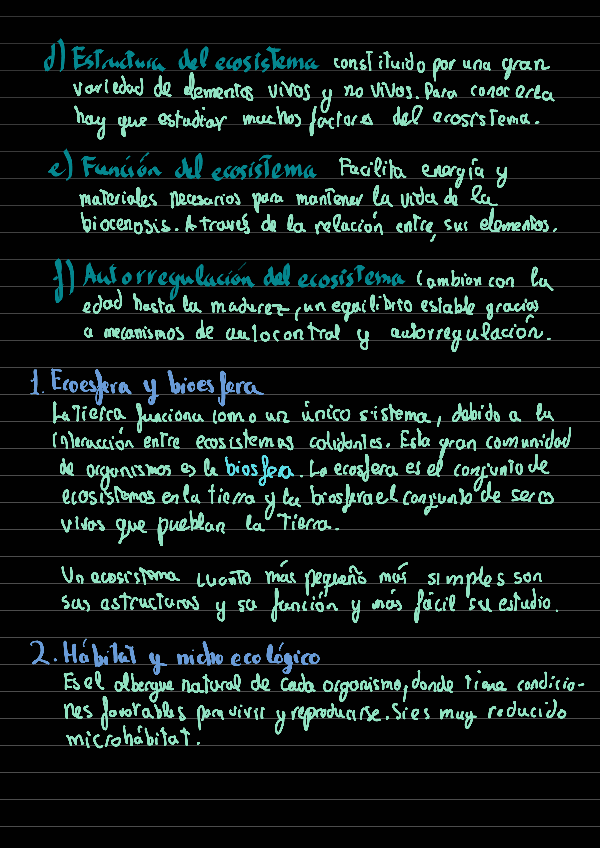 d) Estructura del ecosistema constituido por una gran
variedad de elementos vivos y no vivos. Para conocerla
hay que estudiar muchos factores del ecosistema.
e) Función del ecosistema Facilita energía y
materiales necesarios para mantener la vida de la
biocenosis. A través de la relación entre sus elementos.
f) Autorregulación del ecosistema Cambian con la
edad hasta la madurez, un equilibrio estable gracias
a mecanismos de autocontrol y autorregulación.
1. Ecoesfera y bioesfera
La Tierra funciona como un único sistema, debido a la
interacción entre ecosistemas colidantes. Esta gran comunidad
de organismos es la biosfera. La ecosfera es el conjunto de
ecosistemas en la tierra y la biosfera el conjunto de seres
vivos que pueblan la Tierra.
Un ecosistema cuanto más pequeño más simples son
sus astructuras y su función y más fácil su estudio.
2. Hábitat y nicho ecológico
Es el albergue natural de cada organismo, donde tiene condicio-
nes favorables para vivir y reproducirse. Si es muy reducido
microhábitat.